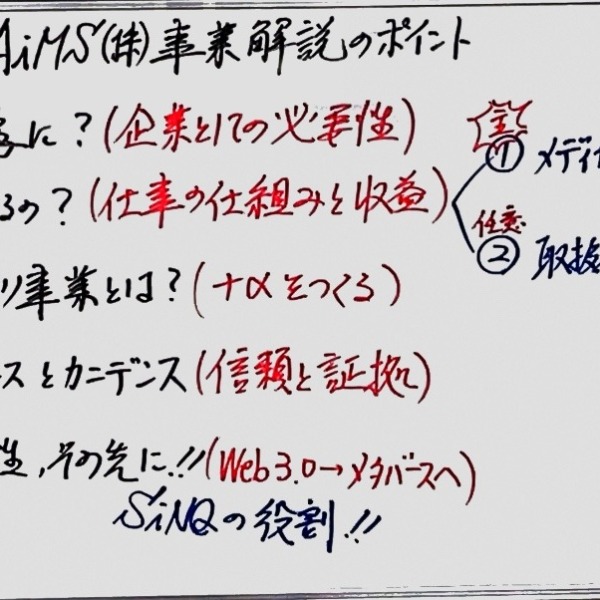 AiMS(株)事業解説のポイント
に?(企業としての必要性)
るの?(仕事の仕組みと収益)
① メディ
任意
② 取扱
リ事業とは?(+αをつくる)
スとカニデンス(信頼と証拠)
性,その先に!!(Web3.0→メタバースへ)
SiNQの役割!!